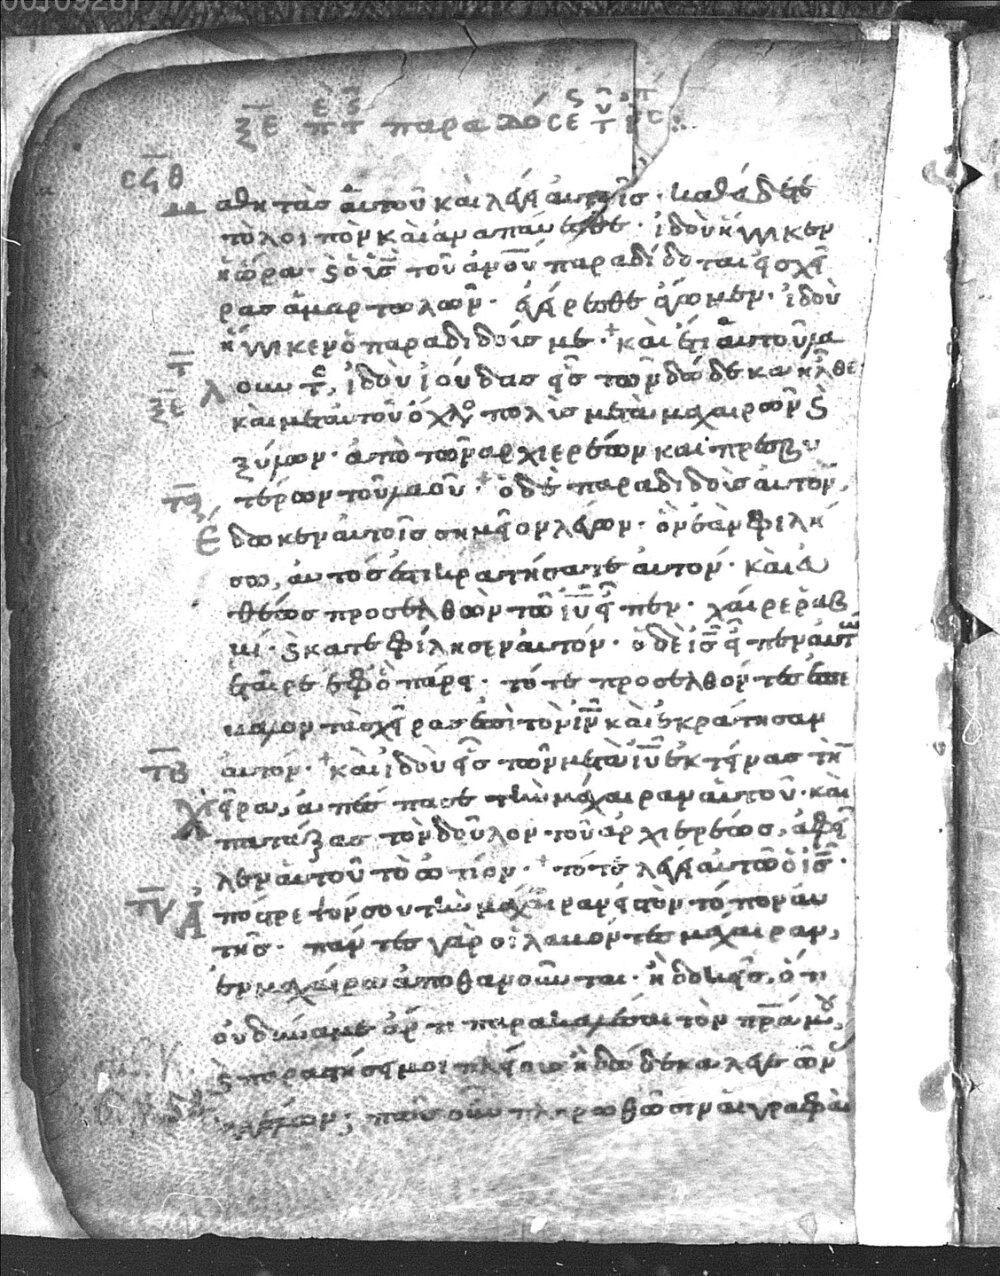 ξε παραδόσε
σϟθ
μαθητὰσ αὐτοῦ καὶ λέγει αὐτοῖσ · καθεύδετε
τὸ λοιπὸν καὶ ἀναπαύεσθε · ἰδοὺ ἤγγικεν
ἡ ὥρα · καὶ ὁ υἱσ τοῦ ἀνου παραδίδοται εἰσ χεῖ
ρασ ἁμαρτωλῶν · ἐγείρεσθε ἄγωμεν · ἰδοὺ
ἤγγικεν ὁ παραδιδούσ με · + καὶ ἔτι αὐτοῦ λα
τ
λοῦντ, ἰδοὺ ἰούδασ εἷσ τῶν δώδεκα ἦλθε
ξε
καὶ μετ αὐτοῦ ὄχλο πολὺσ μετὰ μαχαιρῶν καὶ
ξύλων · ἀπὸ τῶν ἀρχιερέων καὶ πρεσβυ
τα
τέρων τοῦ λαοῦ · + ὁ δὲ παραδιδοὺσ αὐτὸν,
ἔδωκεν αὐτοῖσ σημεῖον λέγων · ὃν ἐὰν φιλή
σω, αὐτόσ ἐστι κρατήσατε αὐτόν · καὶ εὐ
θέωσ προσελθὼν τῶ ιυ εἶπεν · χαῖρε ῥαβ
βί · καὶ κατεφίλησεν αὐτόν · ὁ δὲ ισ εἶπεν αὐτῶ
ἑταῖρε ἐφ ὃ πάρει · τότε προσελθόντεσ ἐπέ
βαλον τὰσ χεῖρασ ἐπὶ τὸν ιν καὶ ἐκράτησαν
τβ
αὐτόν · + καὶ ἰδοὺ εἷσ τῶν μετὰ ιυ ἐκτείνασ τὴν
χεῖρα, ἀπέσπασε τὴν μάχαιραν αὐτοῦ · καὶ
πατάξασ τὸν δοῦλον τοῦ ἀρχιερέωσ, ἀφεῖ
λεν αὐτοῦ τὸ ὠτίον · + τότε λέγει αὐτῶ ὁ ισ ·
τγ
ἀπόστρεψόν σου τὴν μάχαιραν εἰσ τὸν τόπον αὐ
τῆσ · πάντεσ γὰρ οἱ λαβόντεσ μάχαιραν,
ἐν μαχαίρα ἀποθανοῦνται · ἢ δοκεῖσ, ὅτι
οὐ δύναμαι ἄρτι παρακαλέσαι τὸν πρα μου,
καὶ παραστήσει μοι πλείουσ ἢ δώδεκα λεγεῶν
ἀγγέλων; πῶσ οὖν πληρωθῶσιν αἱ γραφαὶ